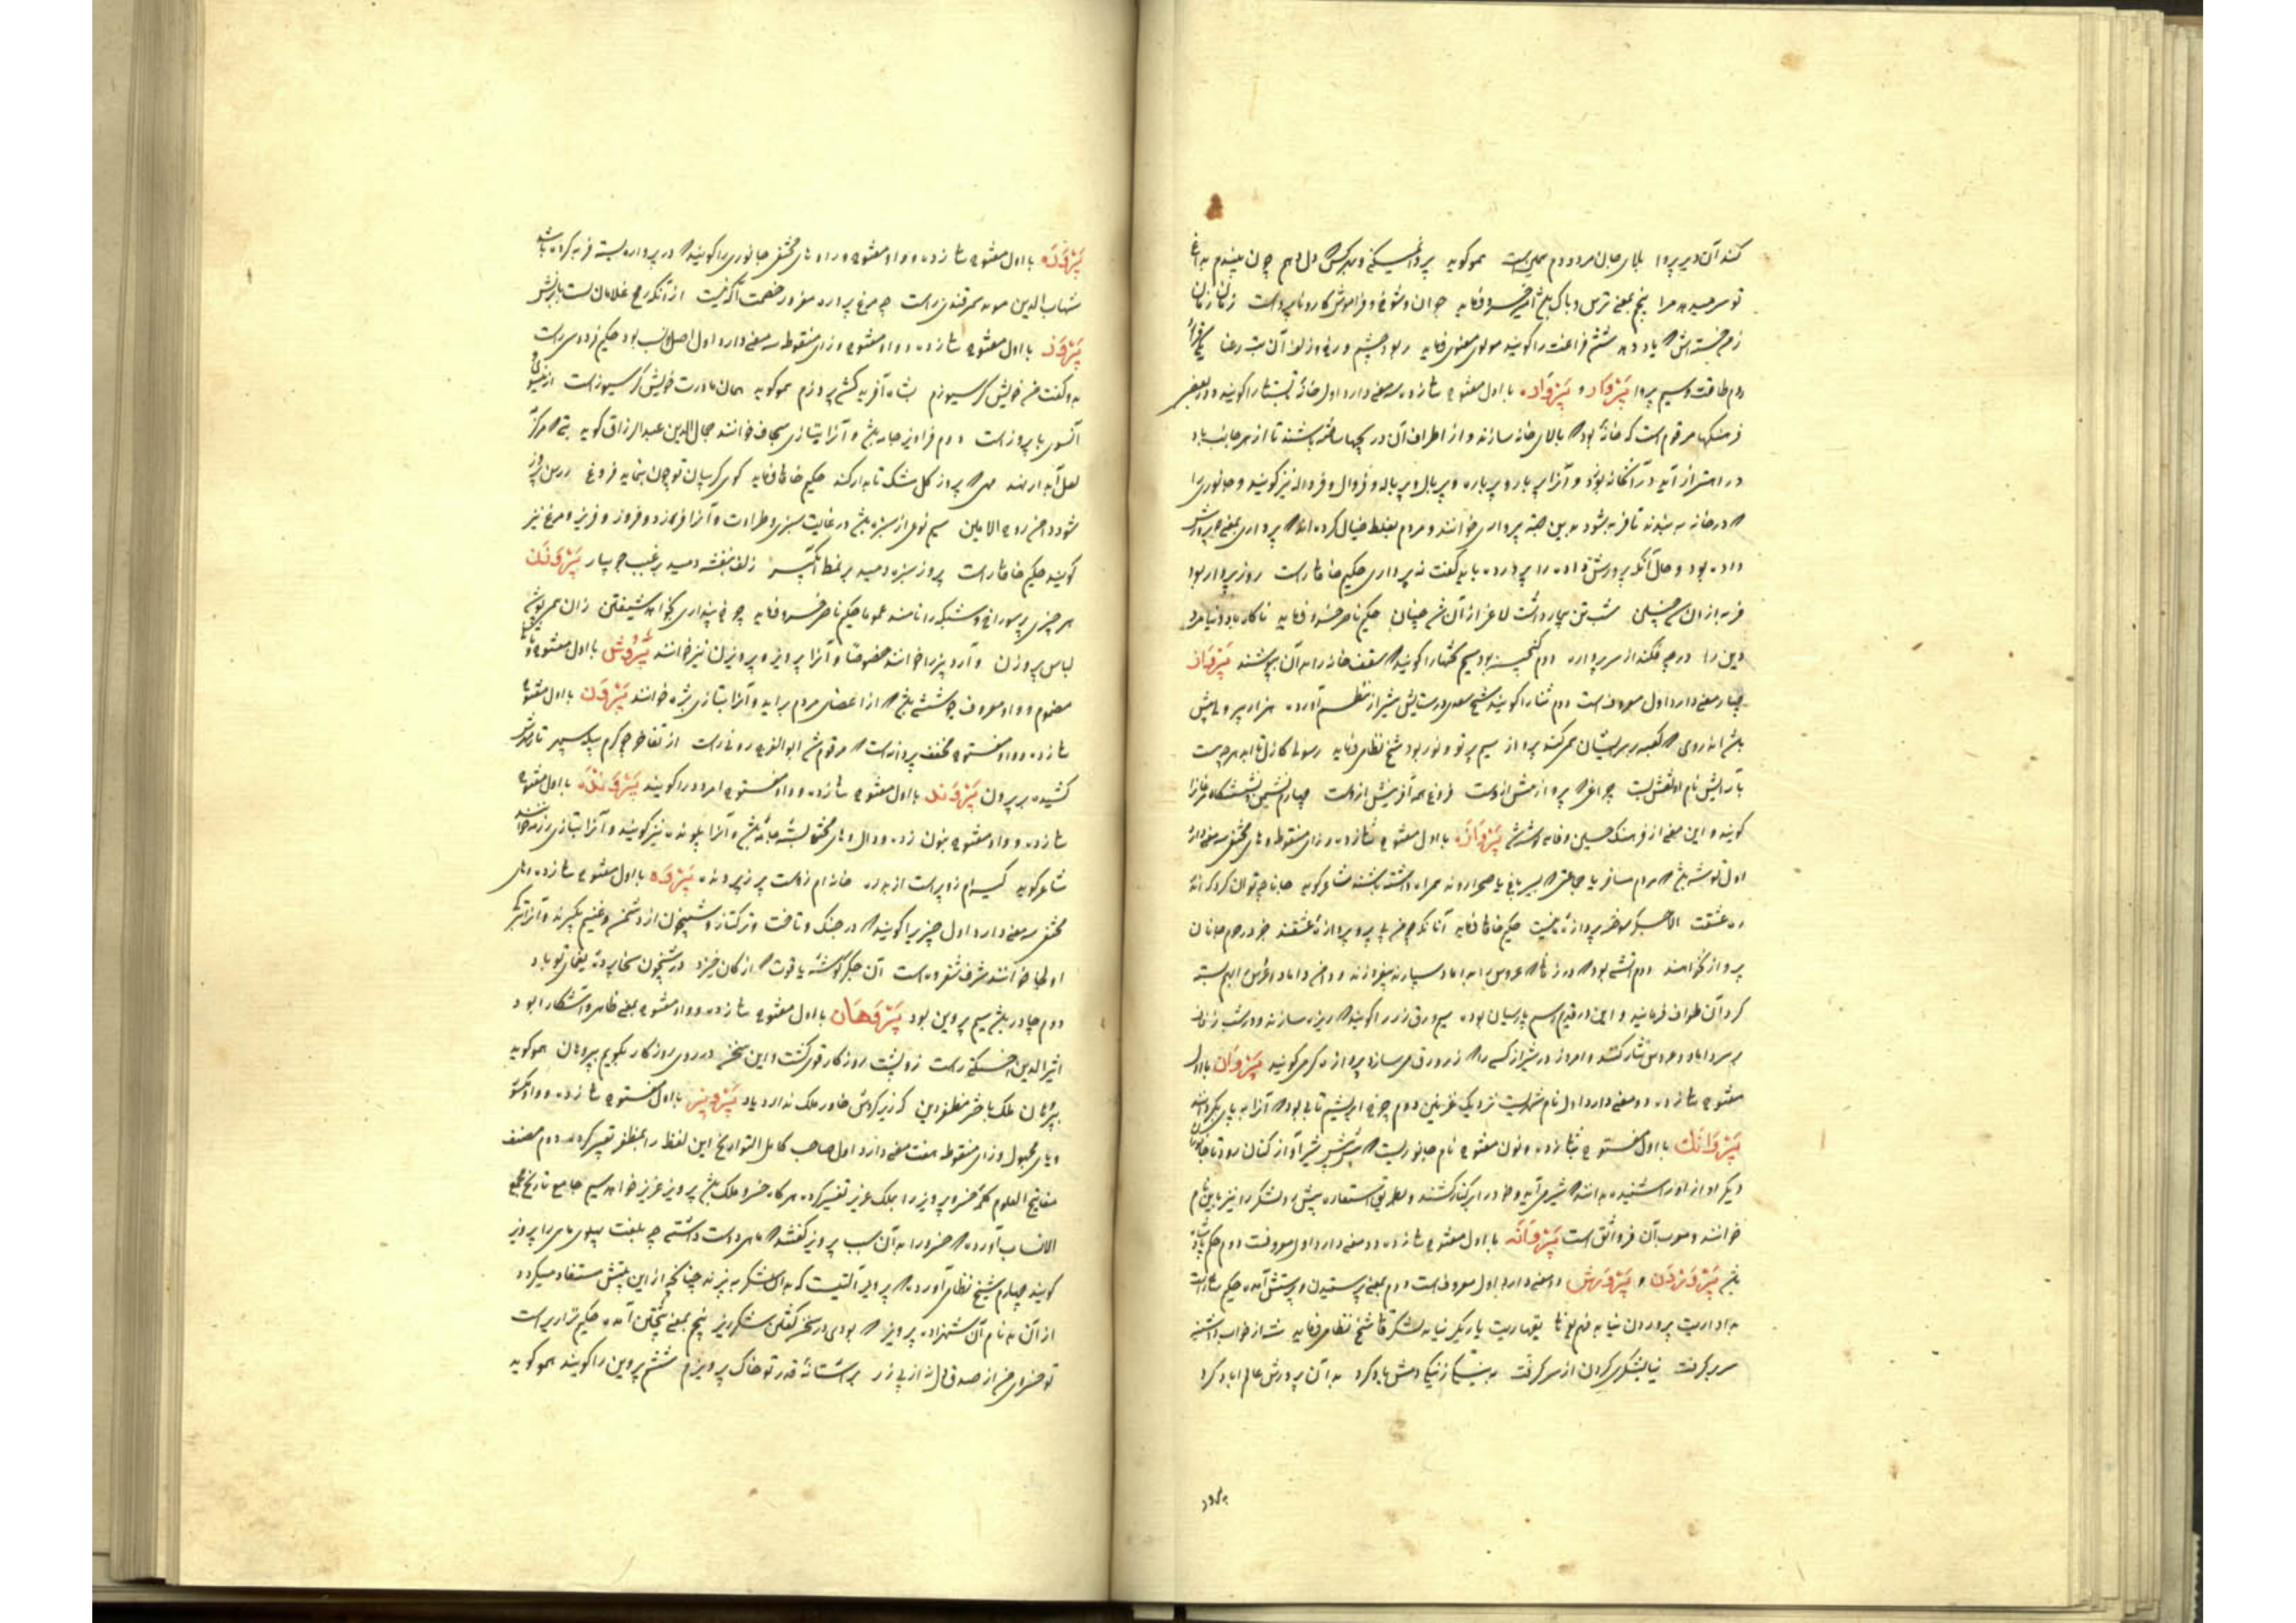 کند آن دیر پروا بلای جان مرد دوم سملی است همو گوید پروا نمیکنی و بهر کس دل دهم چون بینم به داغ
تو سر میبرد مرا پنجم بمعنی ترس و باک باشد امیر خسرو فرماید جوان و شوخ و فراموش کار و ناپرواست زمان زمان
ششم فراغت را گویند مولوی معنوی فرماید ربود چشم و رخ و زلف آن بت رعنا
دوم طاقت و سیم پروا پروار و پرواره با اول مفتوح بثانی زده سه معنی دارد اول خانه تابستانی را گویند و در بعضی
فرهنگها مرقوم است که خانهٔ بود که بالای خانه سازند و از اطراف آن دریچها ساخته باشند تا از هر جانب باد
در اهتزاز آید در آن خانه بوزد و آنرا پربار و پرباره و پربال و پرباله و فروال و فرواله نیز گویند و جانوری را
که در خانه به بندند تا فربه شود بدین جهت پرواری خوانند و مردم بغلط خیال کرده اند که پرواری بمعنی پرورش
داده بود و حال آنکه پرورش داده را پرورده باید گفت نه پرواری حکیم خاقانی راست روز پروار بود
فربه از آن شب تن بیمار داشت لاغر از آن شد چنان حکیم ناصر خسرو فرماید ناکار باد دنیا مرد
دین را درچه فکند از سر پرواره دوم گنجینه بود سیم تختها را گویند که سقف خانه را به آن بپوشند پرواز
چهار معنی دارد اول معروفست دوم نثار را گویند شیخ سعدی در ستایش شیراز نظم آورده هزار پیر و ولی بیش
باشد اندر وی که کعبه بر سر ایشان همی کند پرواز سیم پرتو و نور بود شیخ نظامی فرماید رسولی کازل تا ابد هرچه هست
بآرایش نام او نقش بست چراغی که پرواز بینش ازوست فروغ همه آفرینش ازوست چهارم نشیمن و نشستگاه مرغانرا
گویند و این معنی از فرهنگ حسین وفائی نوشته شد پروازه با اول مفتوح بثانی زده و زای منقوطه و های مختفی سه معنی دارد
اول توشه باشد که مردم مسافر یا جماعتی که بسیر باغ یا صحرا روند همراه داشته باشند شاعر گوید جانا چه توان کرد که اندر
ره عشقت الا جگر سوخته پروازهٔ ما نیست حکیم خاقانی فرماید آنانکه چو من بی پر و پروازهٔ عشقند جز در حرم جانان
پرواز نخواهند دوم آتشی بود که در زفافی که عروس را به داماد سپارند بیفروزند و داماد و عروس را بهم بسته
گرد آن طواف فرمایند و این در قدیم رسم پارسیان بوده سیم ورق زر را گویند که ریزه سازند و در شب زفاف
بر سر داماد و عروس نثار کنند و امروز در شیراز کسی را که زرورق می سازد پروازه گر می گویند پروان با اول
مفتوح بثانی زده دو معنی دارد اول نام شهریست نزدیک غزنین دوم چرخ ابریشم تابی بود که آنرا به پای بگردانند
پروانک با اول مفتوح بثانی زده و نون مفتوح نام جانوریست که پیش پیش شیر آواز کنان رود تا جانوران
دیگر آواز او را شنیده بدانند که شیر می آید و خود را بر کنار کشند و بطریق استعاره پیش رو لشکر را نیز باین نام
خوانند و معرب آن فروانق است پروانه با اول مفتوح بثانی زده دو معنی دارد اول معروفست دوم حکم پادشاه
باشد پروردن و پرورش دو معنی دارد اول معروفست دوم بمعنی پرستیدن و پرستش آمده حکیم سنائی راست
شیخ نظامی فرماید شه از خواب دوشینه
سر برگرفت نیایشگری کردن از سر گرفت به نیکی ز نیکی دهش یاد کرد بدان پرورش عالم آباد کرد
پرورده
پرورده با اول مفتوح بثانی زده و واو مفتوح و را و های مختفی جانوری را گویند که در پرواره بسته فربه کرده باشند
شهاب الدین مؤید سمرقندی راست چو مرغ پرواره مغرور خصمت آگه نیست از آنکه رمح غلامان تست بابزنش
پروز با اول مفتوح بثانی زده و واو مفتوح و زای منقوطه سه معنی دارد اول اصل و نسب بود حکیم فردوسی راست
بدو گفت من خویش گرسیوزم بشاه آفریدون کشد پروزم همو گوید همان مادرت خویش گرسیوزست از نیسو
آنسوی با پروزست دوم فراویز جامه باشد و آنرا بتازی سجاف خوانند جمال الدین عبدالرزاق گوید
لعل آبدار نهند پروز گل مشک تابدار کند حکیم خاقانی فرماید گوی گریبان تو چون بنماید فروغ زرین پروز
شود دامن روح الامین سیم نوعی از سبزه باشد در غایت سبزی و طراوت و آنرا فرزد و فروز و فریز و مرغ نیز
گویند حکیم خاقانی راست پروز سبزه دمید بر نمط آبگیر زلف بنفشه دمید بر غبب جویبار پروزن
هر چیزی پر سوراخ و مشبک را نامند عموما حکیم ناصر خسرو فرماید چرخ پنداری بخواهد شیفتن زان همی پوشد
لباس پروزن و آرد بیز را خوانند خصوصا و آنرا پرویز و پرویزن نیز خوانند پروش با اول مفتوح و ثانی
مضموم و واو معروف جوششی باشد که از اعضای مردم براید و آنرا بتازی بثره خوانند پرون با اول مفتوح
بثانی زده و واو مفتوح مخفف پروانست که مرقوم شد ابوالفرج رونی راست از تفاخر چو کرم پیله سپهر تار مدحش
کشیده بر پرون پروند با اول مفتوح بثانی زده و واو مفتوح امرود را گویند پرونده با اول مفتوح
بثانی زده و واو مفتوح بنون زده و دال و های مختفی پشتهٔ جامه باشد و آنرا پلونده نیز گویند و آنرا بتازی رزمه خوانند
شاعر گوید کیسه ام زو پرست از بدره خانه ام زوست پر ز پرونده پروه با اول مفتوح بثانی زده و های
مختفی سه معنی دارد اول چیزی را گویند که در جنگ و تاخت و ترکتاز و شبیخون از دشمن و غنیم بگیرند و آنرا بترکی
اولجا خوانند شرف شفروه است آن جگر گوشهٔ یاقوت که از کان خیزد در شبیخون سخا پروهٔ یغمای تو باد
دوم چادر باشد سیم پروین بود پروهان با اول مفتوح بثانی زده و واو مفتوح بمعنی ظاهر و آشکارا بود
اثیرالدین اخسیکتی راست زو پشت روزگار قوی گشت و این سخن در روی روزگار بگویم پروهان همو گوید
پروهان ملک باختر مظفر دین که زیر گردش خاور ملک ندارد یاد پرویز با اول مفتوح بثانی زده و واو مکسور
و یای مجهول و زای منقوطه هفت معنی دارد اول صاحب کامل التواریخ این لفظ را بمظفر تفسیر کرده دوم مصنف
مفاتیح العلوم کلمهٔ خسرو پرویز را بملک عزیز تفسیر کرده هرگاه خسرو ملک باشد پرویز عزیز خواهد سیم جامع تاریخ مجمع
الانساب آورده که خسرو را به آن سبب پرویز گفتند که ماهی دوست داشتی چه بلغت پهلوی ماهی را پرویز
گویند چهارم شیخ نظامی آورده که پرویز آلتیست که به آن شکر بیزند چنانچه از این بیتش مستفاد میگردد
از آن بد نام آن شهزاده پرویز که بودی در سخن گفتن شکرریز پنجم بمعنی بیختن آمده حکیم نزاری راست
ششم پروین را گویند همو گوید